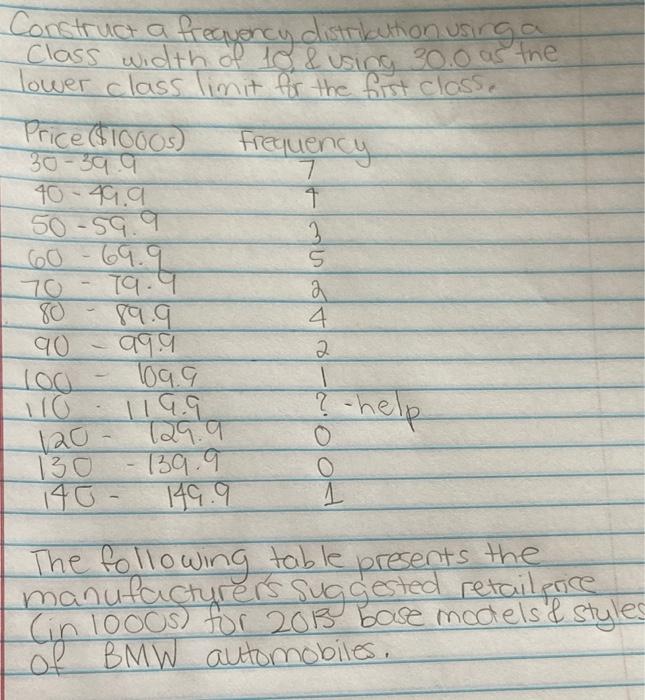 Construct a frequency distribution using a
Class width of 10 & using 30.0 as the
lower class limit for the first class.
Price ($1000s) Frequency
30 - 39.9 7
40 - 49.9 4
50 - 59.9 3
60 - 69.9 5
70 - 79.9 2
80 - 89.9 4
90 - 99.9 2
100 - 109.9 1
110 - 119.9 ? - help
120 - 129.9 0
130 - 139.9 0
140 - 149.9 1
The following table presents the
manufacturer's suggested retail price
(in 1000s) for 2013 base models & styles
of BMW automobiles.